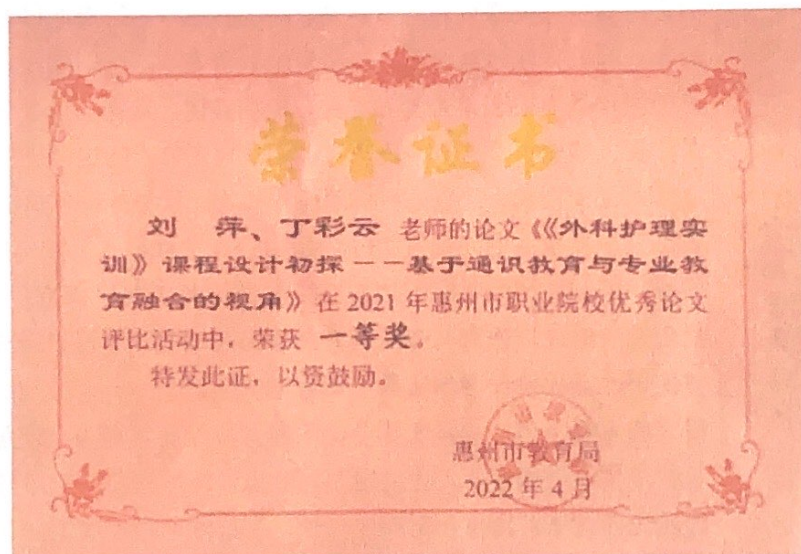 荣誉证书
刘 萍、丁彩云 老师的论文《《外科护理实
训》课程设计初探——基于通识教育与专业教
育融合的视角》在 2021 年惠州市职业院校优秀论文
评比活动中，荣获 一等奖。
特发此证，以资鼓励。
惠州市教育局
2022 年 4 月